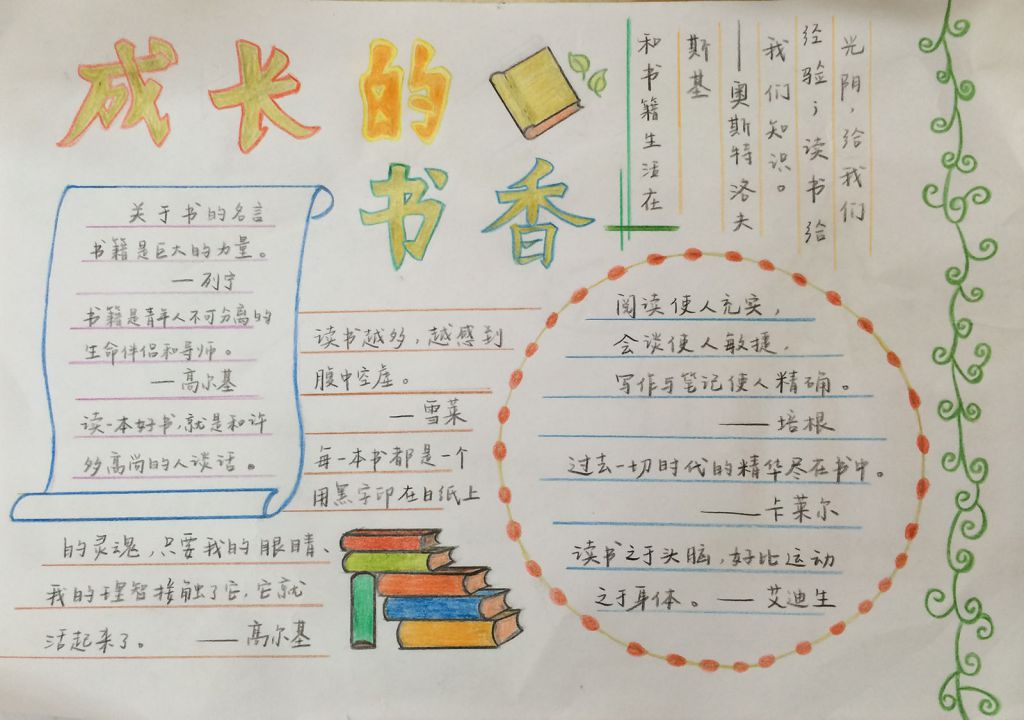 成长的
书香
光阴,给我们
经验;读书给
我们知识。
——奥斯特洛夫
斯基
和书籍生活在
关于书的名言
书籍是巨大的力量。
—列宁
书籍是青年人不可分离的
生命伴侣和导师。
—高尔基
读一本好书,就是和许
多高尚的人谈话。
读书越多,越感到
腹中空虚。
—雪莱
每一本书都是一个
用黑字印在白纸上
的灵魂,只要我的眼睛、
我的理智接触了它,它就
活起来了。 ——高尔基
阅读使人充实,
会谈使人敏捷,
写作与笔记使人精确。
——培根
过去一切时代的精华尽在书中。
——卡莱尔
读书之于头脑,好比运动
之于身体。—艾迪生